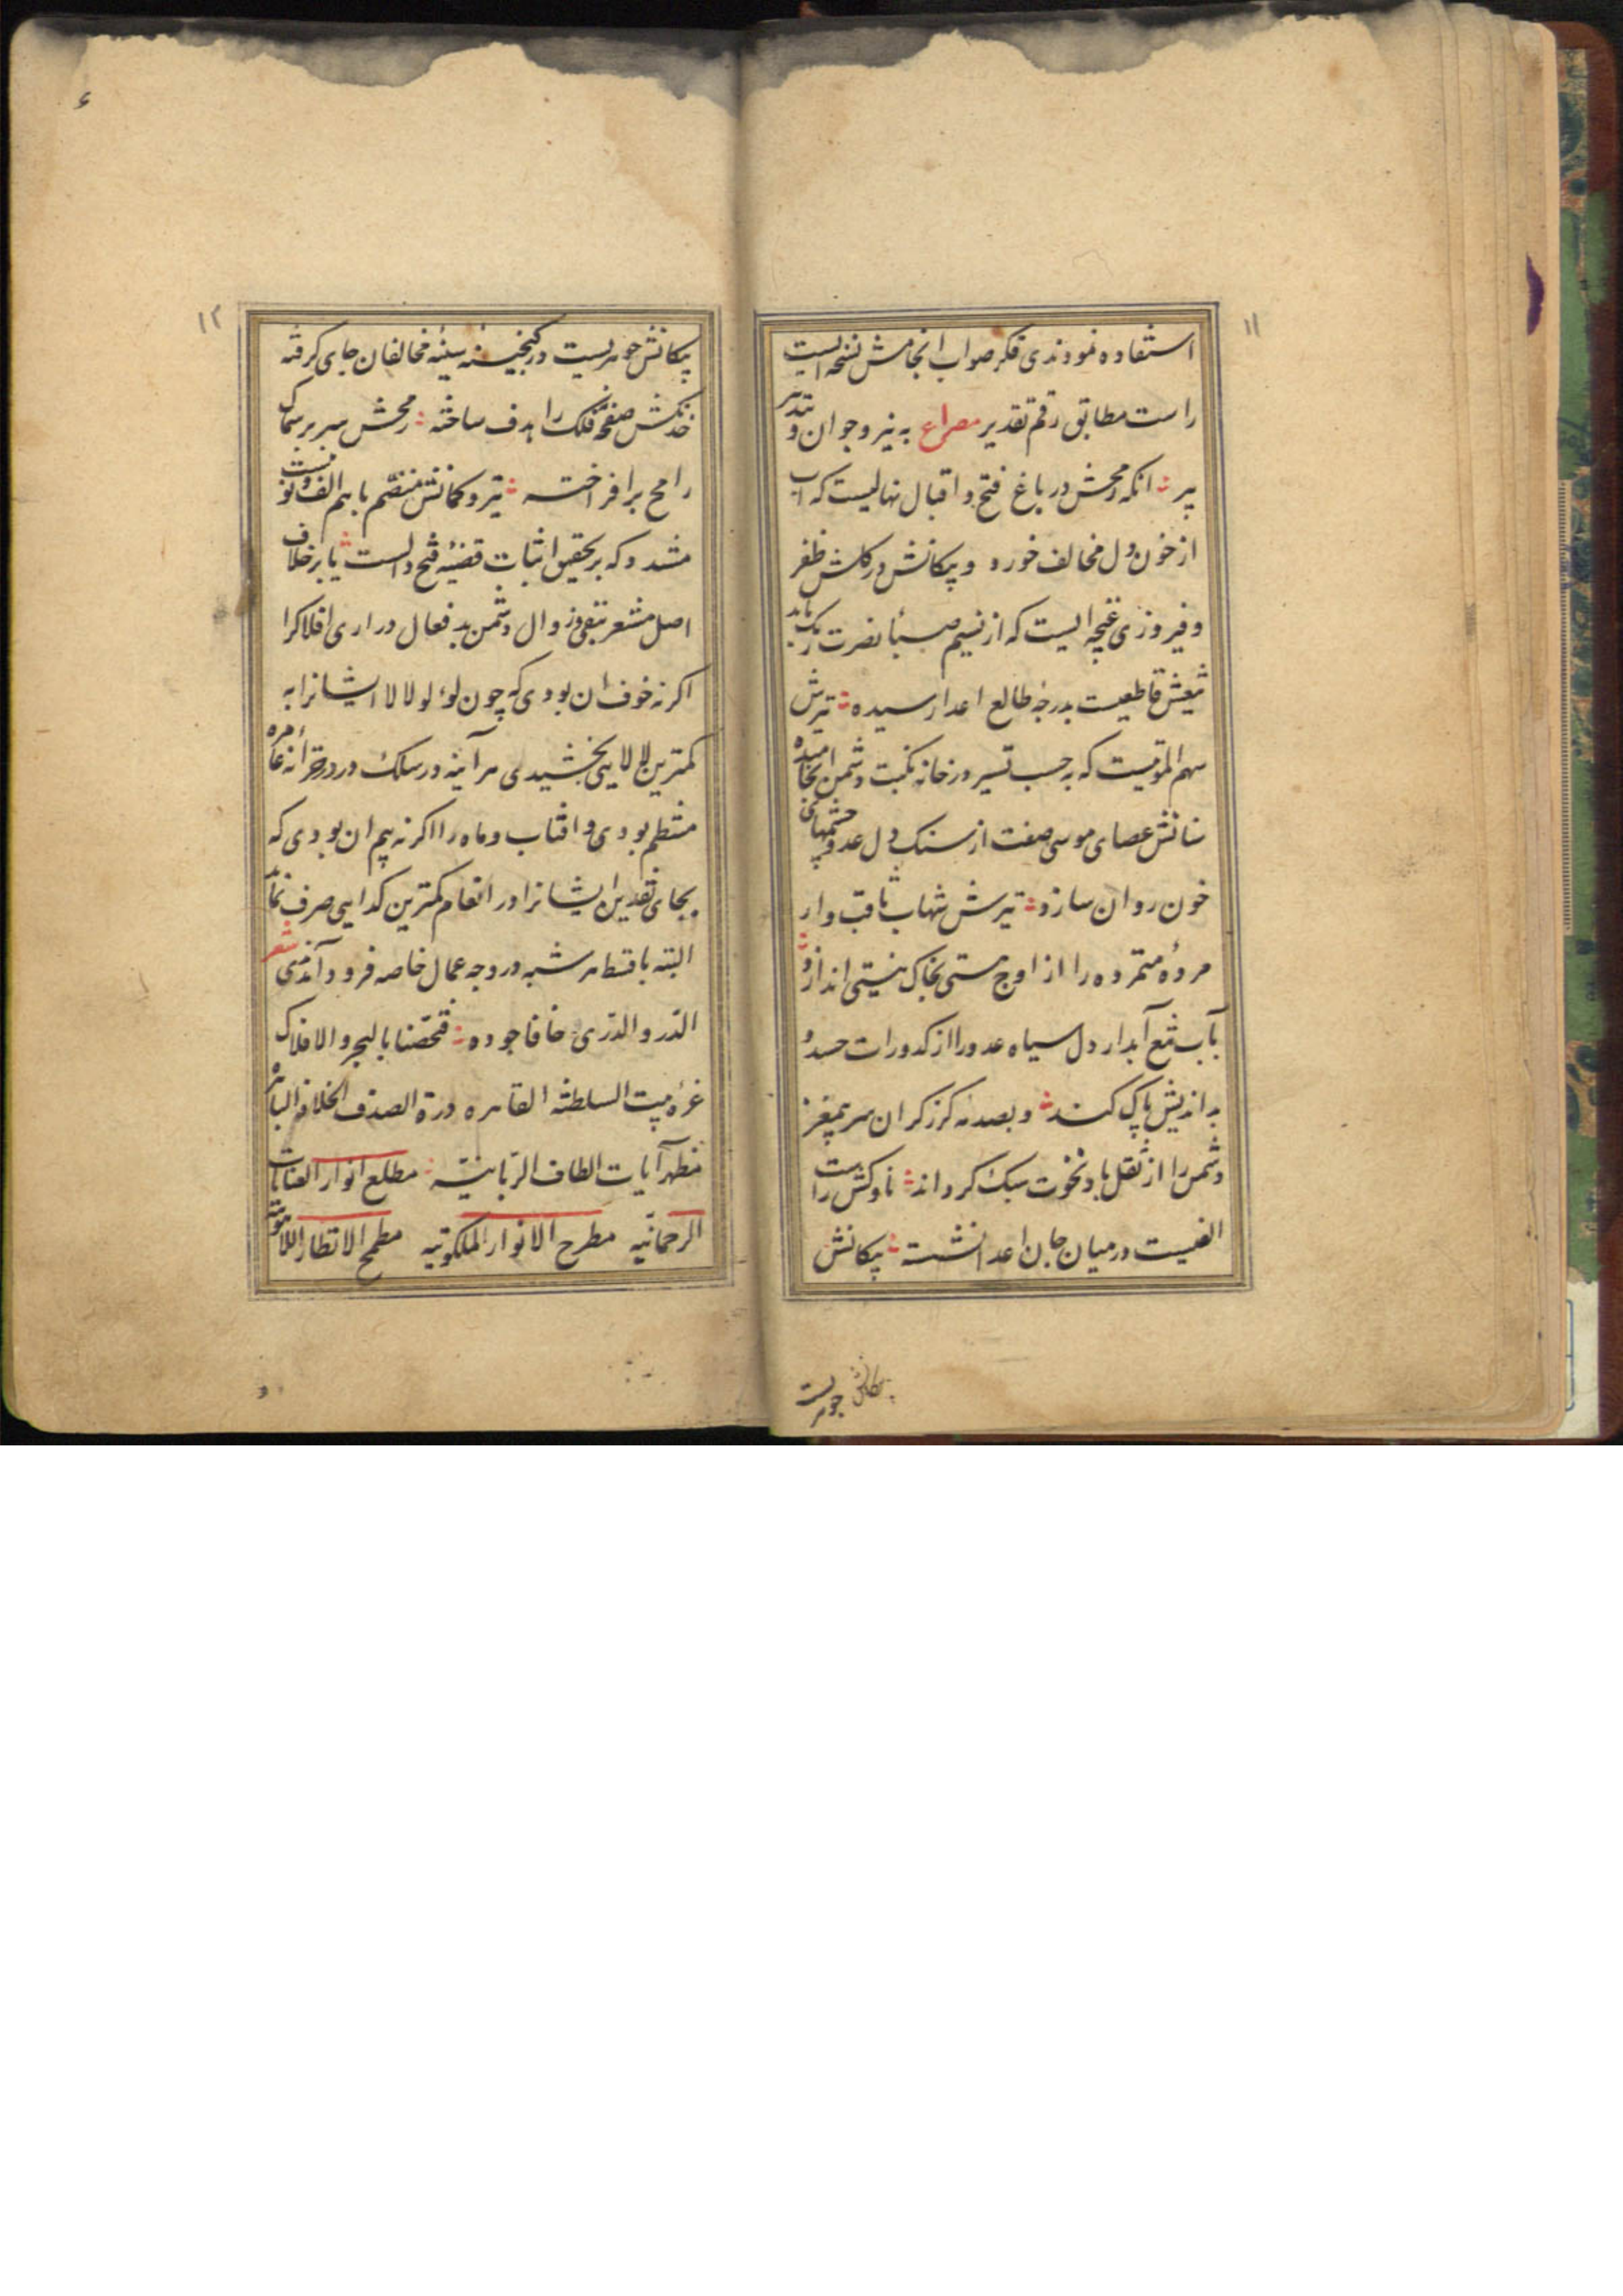 ۱۱
استفاده نمودندی فکر صواب انجامش نسخه ایست
راست مطابق رقم تقدیر مصراع به نیر و جوان و بتدبیر
پیر انکه رمحش در باغ فتح و اقبال نهالیست که اب
از خون دل مخالف خورد و پیکانش در کلشن ظفر
و فیروزی غنچه ایست که از نسیم صبا نصرت رنک یابد
تیغش قاطعیت بدرجهٔ طالع اعدا رسیده تیرش
سهم الموتیست که بر حسب تسیر در خانه نکبت دشمن انجامیده
سنانش عصای موسی صفت از سنک دل عدو چشمهای
خون روان سازد تیرش شهاب ثاقب وار
مردهٔ متمرده را از اوج هستی بخاک نیستی اندازد و
بآب تیغ آبدار دل سیاه عدو را از کدورات حسد و
بداندیش پاک کند و بصدمه کرز کران سر بیمغز
دشمن را از ثقل باد نخوت سبک کرداند ناوکش راست
الفیست در میان جان اعدا نشسته پیکانش
پیکانش جوهریست
۱۲
پیکانش جوهریست در کنجینه سینهٔ مخالفان جای کرفته
خدنکش صفحهٔ فلک را هدف ساخته رمحش سر بر سماک
رامح برافراخته تیر و کمانش منضم با هم الف و نونیست
مشدد که بر تحقیق اثبات قضیه فتح دالست یا بر خلاف
اصل مشعر بنفی و زوال دشمن بد فعال دراری افلاکرا
اکر نه خوف ان بودی که چون لؤلو لالا ایشانرا به
کمترین لالایی بخشیدی هر آینه در سلک درر خزانه عامره
منتظم بودی و افتاب و ماه را اکر نه بیم ان بودی که
بجای نقدین ایشانرا در انعام کمترین کدایی صرف نماید
البته باقتطاهر شبه در وجه عمال خاصه فرود آمدندی شعر
الدر و الدری خافا جوده فتحصنا بالبحر و الافلاک
غرهٔ بیت السلطنه القاهره درة الصدف الخلافه الباهره
مظهر آیات الطاف الربانیه مطلع انوار العنایات
الرحمانیه مطرح الانوار الملکوتیه مطمح الانظار اللاهوتیه